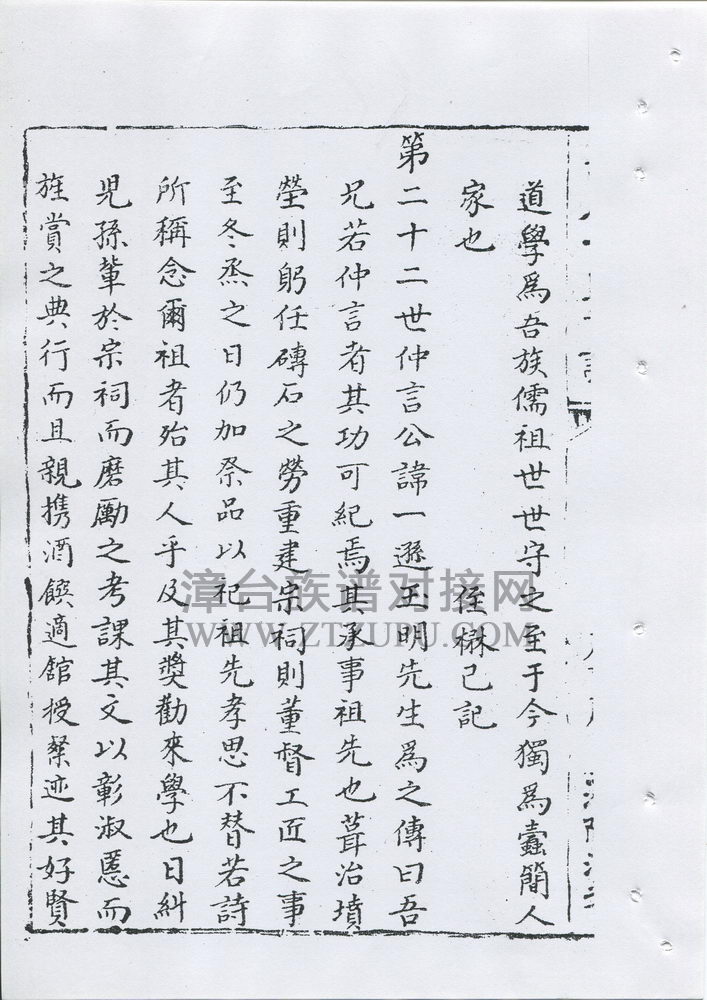 道學爲吾族儒祖世世守之至于今獨爲蠹簡人
家也　侄楙己記
第二十二世仲言公諱一遜玉明先生爲之傳曰吾
兄若仲言者其功可紀焉其承事祖先也葺治墳
塋則躬任磚石之勞重建宗祠則董督工匠之事
至冬烝之日仍加祭品以祀祖先孝思不替若詩
所稱念爾祖者殆其人乎及其獎勸來學也日糾
兒孫輩於宗祠而磨勵之考課其文以彰淑慝而
旌賞之典行而且親携酒饌適館授粲迹其好賢
漳台族谱对接网
WWW.ZTZUPU.COM